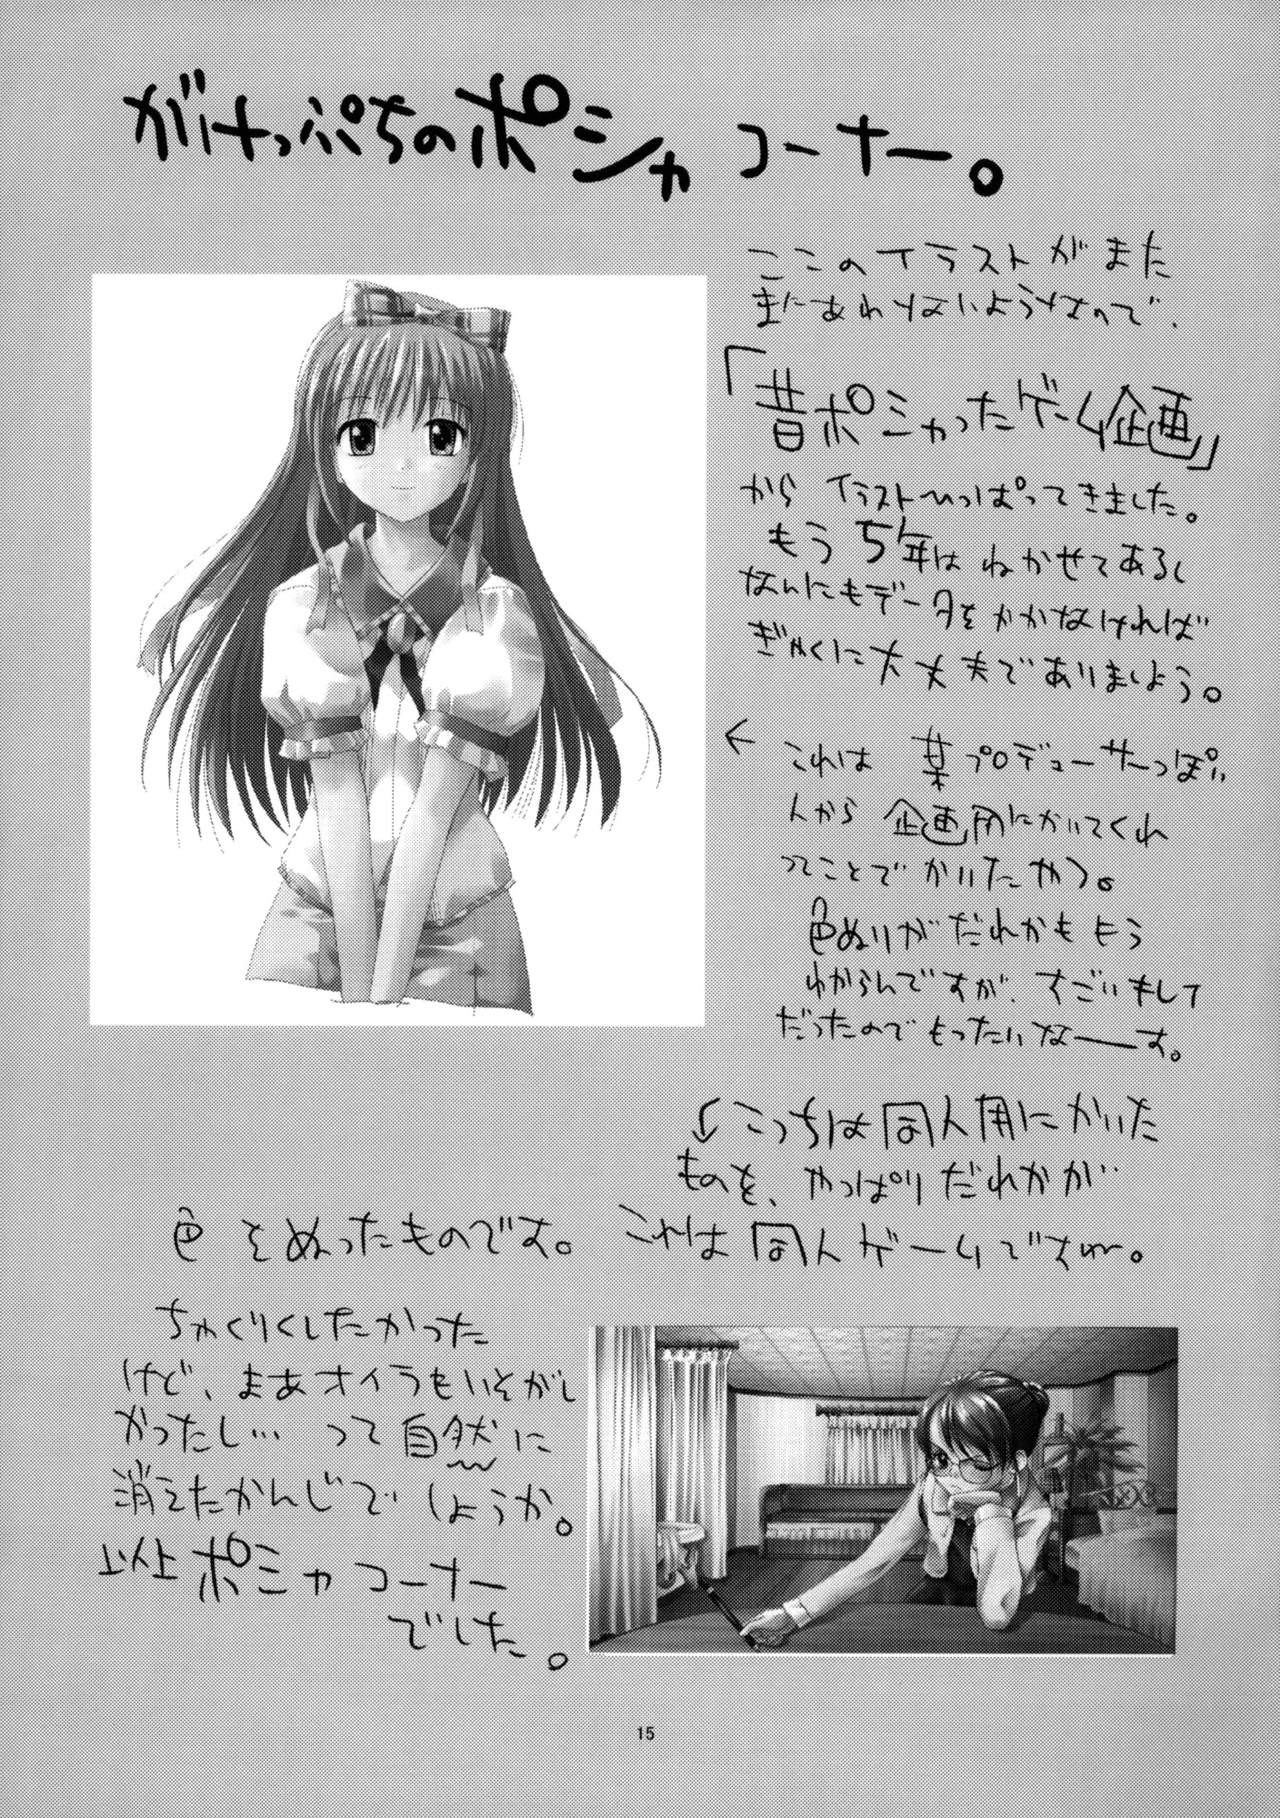 がけっぷちのポシャコーナー。
ここのイラストがまた
まにあわなないようなので、
「昔ポシャったゲーム企画」
からイラストひっぱってきました。
もう5年はねかせてあるし
なんにもデータをかかなければ
ぎゃくに大丈夫でありましょう。
← これは 某プロデューサーっぽい
人から 企画用にかいてくれ
ってことでかいたやつ。
色ぬりがだれかももう
わからんですが、すごいまして
だったのでもったいなーす。
↓こっちは同人用にかいた
ものを、やっぱりだれかが
色をぬったものです。これは同人ゲームですかー。
ちゃくりくしたかった
けど、まあオイラもいそがし
かったし… って自然に
消えたかんじでしょうか。
以上ポシャコーナー
でした。
15